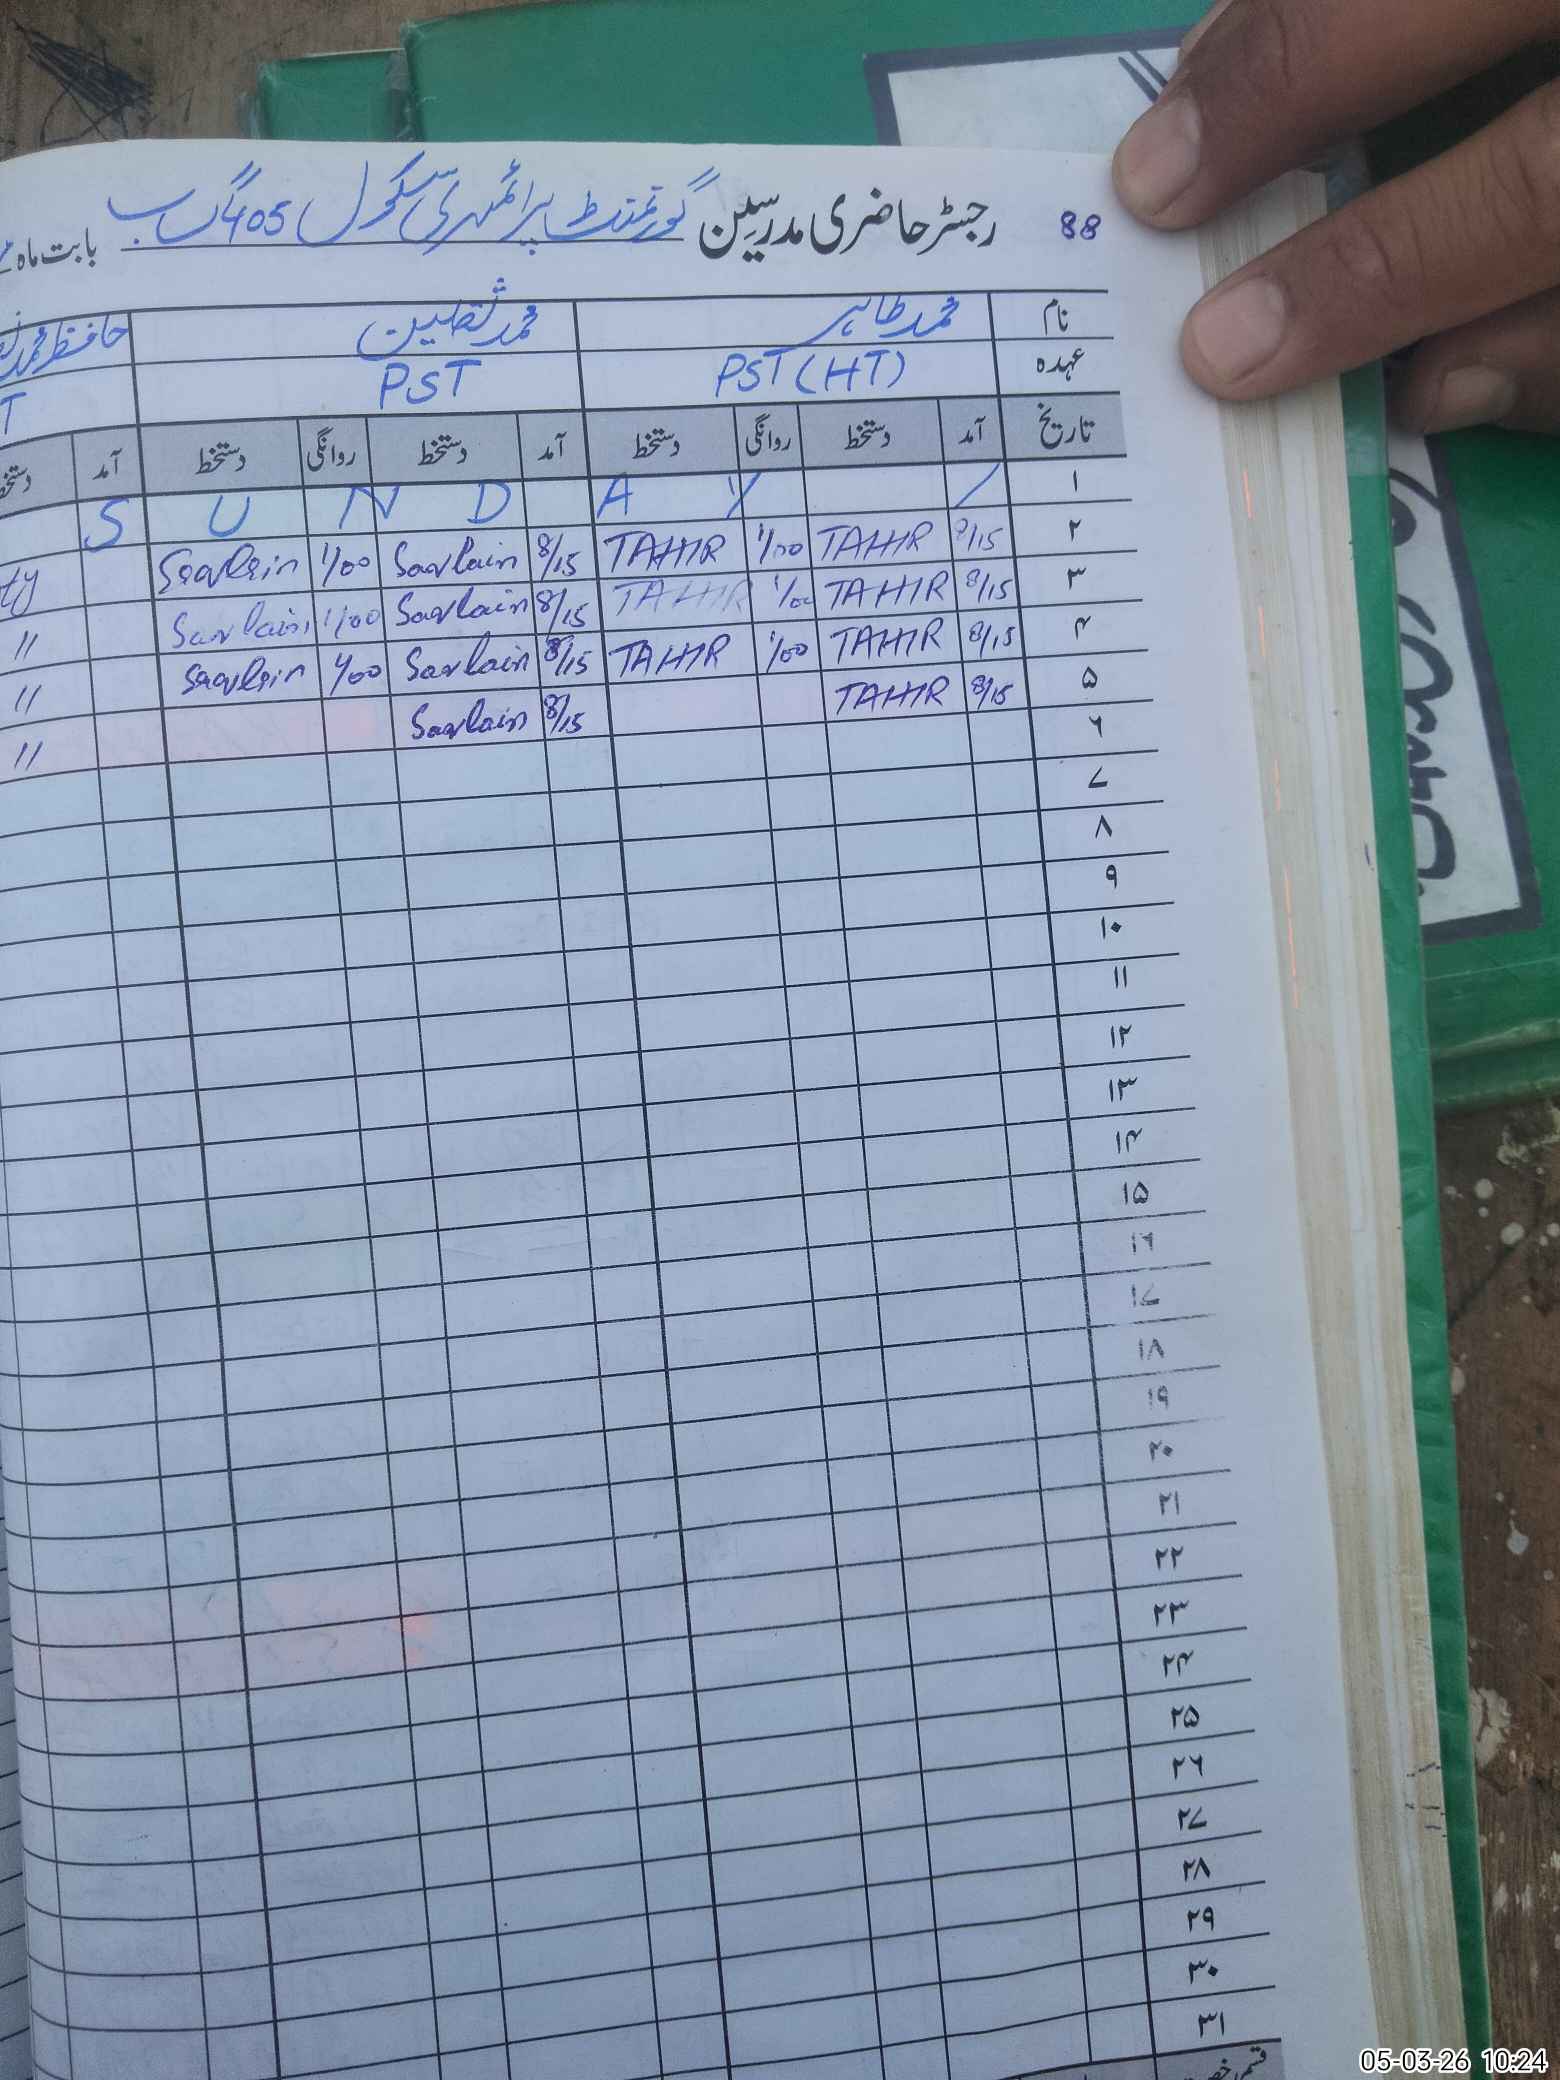 88 رجسٹر حاضری مدرسین گورنمنٹ پرائمری سکول 405 گ ب بابت ماہ
نام محمد طاہر محمد ثقلین حافظ محمد
عہدہ PST (HT) PST T
تاریخ آمد دستخط روانگی دستخط آمد دستخط روانگی دستخط آمد دستخط
۱ S U N D A Y
۲ 8/15 TAHIR 1/00 TAHIR 8/15 Saqlain 1/00 Saqlain ty
۳ 8/15 TAHIR 1/00 TAHIR 8/15 Saqlain 1/00 Saqlain "
۴ 8/15 TAHIR 1/00 TAHIR 8/15 Saqlain 1/00 Saqlain "
۵ 8/15 TAHIR 8/15 Saqlain "
۶
۷
۸
۹
۱۰
۱۱
۱۲
۱۳
۱۴
۱۵
۱۶
۱۷
۱۸
۱۹
۲۰
۲۱
۲۲
۲۳
۲۴
۲۵
۲۶
۲۷
۲۸
۲۹
۳۰
۳۱
05-03-26 10:24